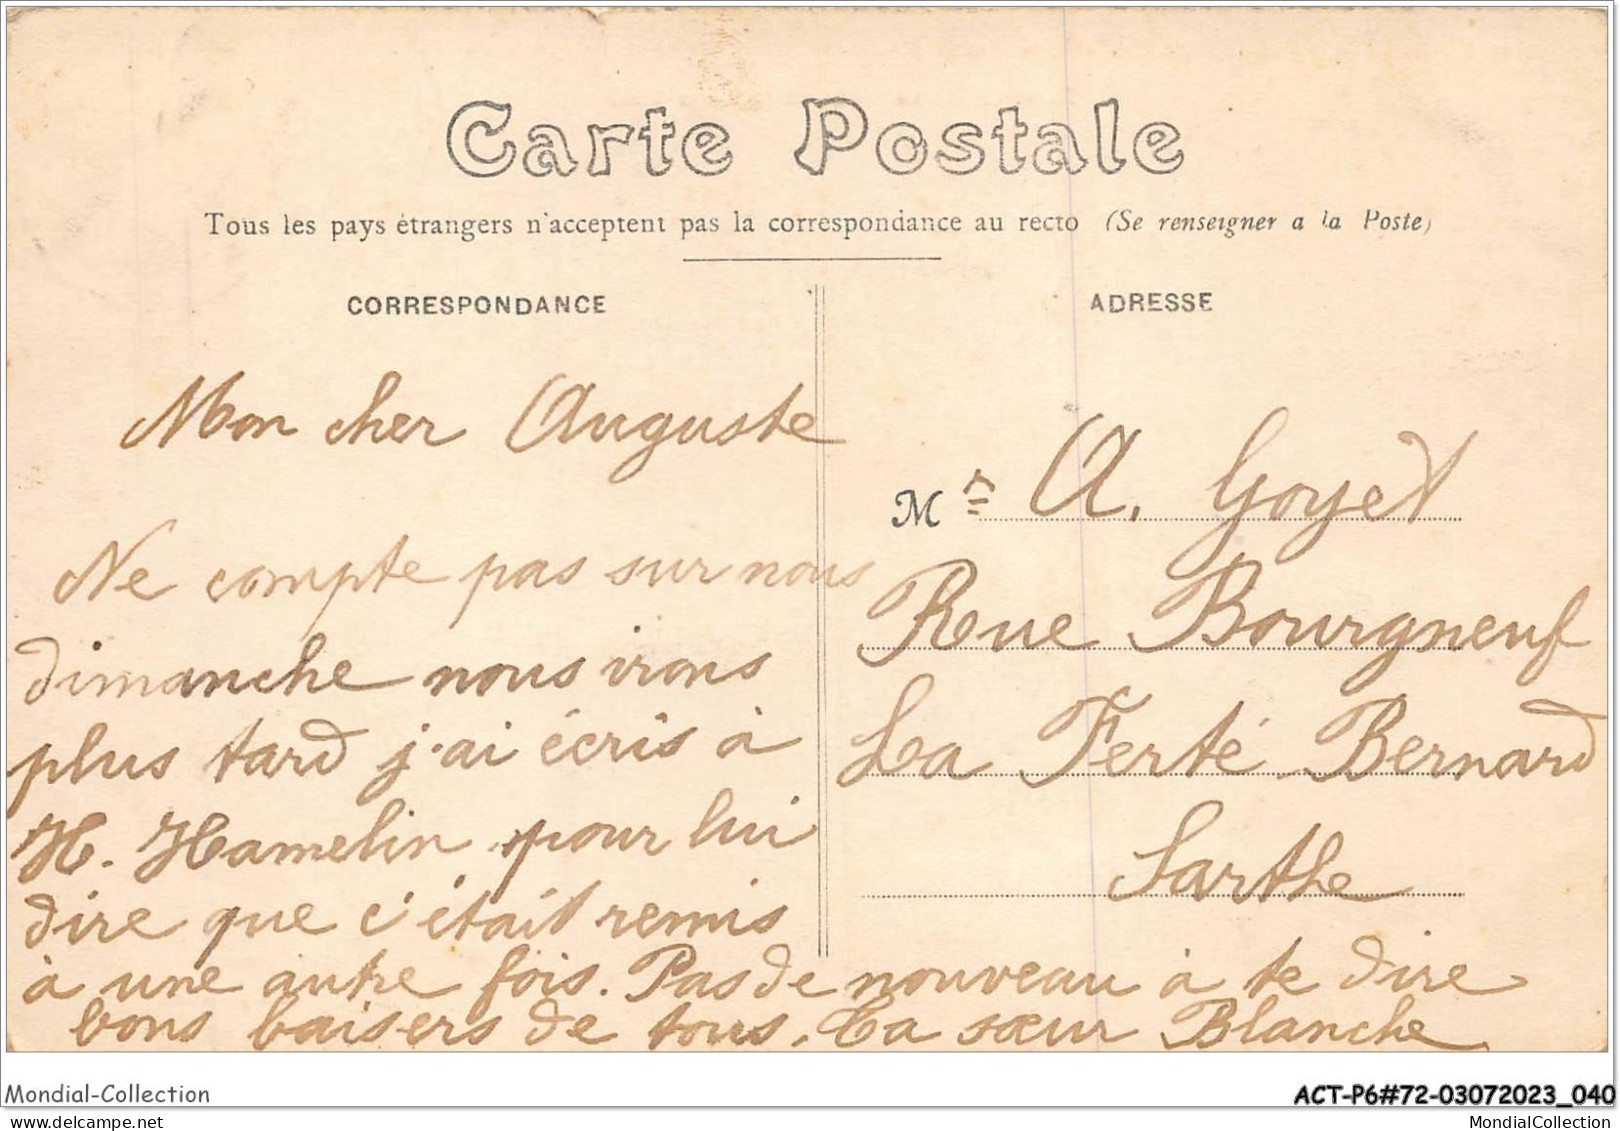 Carte Postale
Tous les pays étrangers n'acceptent pas la correspondance au recto (Se renseigner a la Poste)
CORRESPONDANCE
Mon cher Auguste
Ne compte pas sur nous
dimanche nous irons
plus tard j'ai écris à
H. Hamelin pour lui
dire que c'était remis
à une autre fois. Pas de nouveau à te dire
bons baisers de tous. Ta sœur Blanche
ADRESSE
Mr A. Goyet
Rue Bourgneuf
La Ferté Bernard
Sarthe
Mondial-Collection
ACT-P6#72-03072023_040
MondialCollection.com
MondialCollection